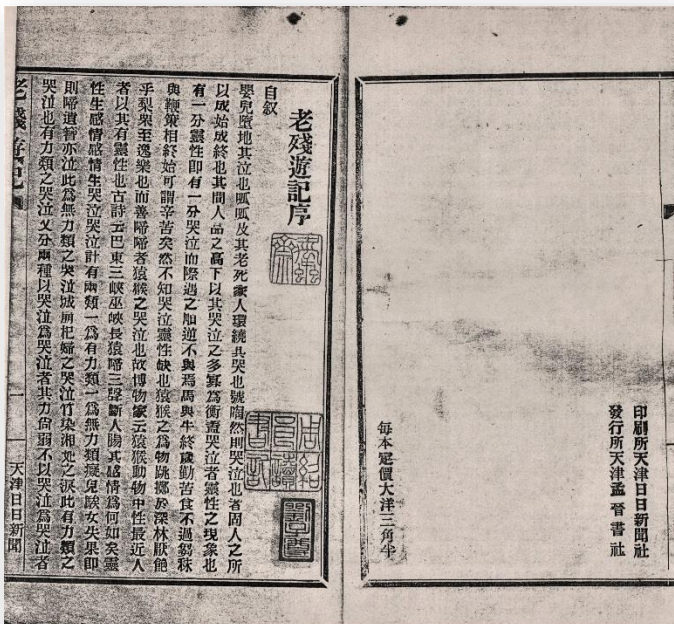 印刷所天津日日新聞社
發行所天津孟晉書社
每本定價大洋三角半
老殘遊記序
自叙
嬰兒墮地其泣也呱呱及其老死家人環繞其哭也號啕然則哭泣也者固人之所
以成始成終也其間人品之高下以其哭泣之多寡為衡蓋哭泣者靈性之現象也
有一分靈性即有一分哭泣而際遇之順逆不與焉馬與牛終歲勤苦食不過芻秣
與鞭策相終始可謂辛苦矣然不知哭泣靈性缺也猿猴之為物跳擲於深林厭飽
乎梨栗至逸樂也而善啼啼者猿猴之哭泣也故博物家云猿猴動物中性最近人
者以其有靈性也古詩云巴東三峽巫峽長猿啼三聲斷人腸其感情為何如矣靈
性生感情感情生哭泣哭泣計有兩類一為有力類一為無力類癡兒騃女失果即
則啼遺簪亦泣此為無力類之哭泣城崩杞婦之哭泣竹染湘妃之淚此有力類之
哭泣也有力類之哭泣又分兩種以哭泣為哭泣者其力尚弱不以哭泣為哭泣者
老殘遊記
一
天津日日新聞